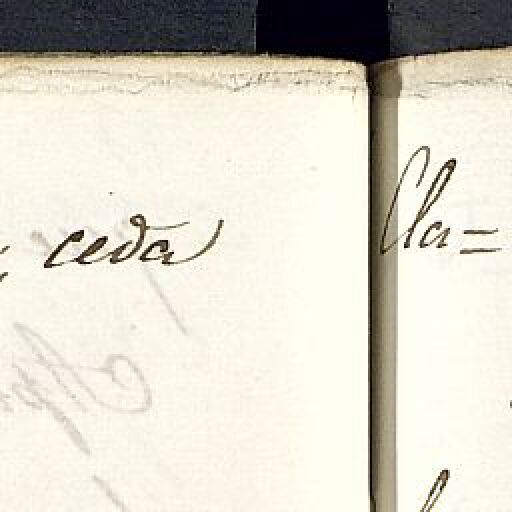 ceda
Cla=